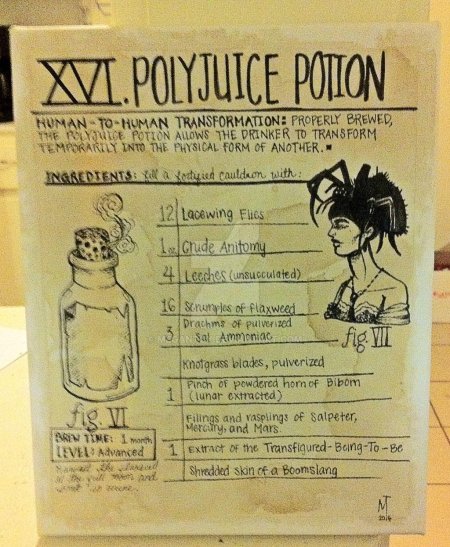 XVI. POLYJUICE POTION
HUMAN-TO-HUMAN TRANSFORMATION: PROPERLY BREWED,
THE POLYJUICE POTION ALLOWS THE DRINKER TO TRANSFORM
TEMPORARILY INTO THE PHYSICAL FORM OF ANOTHER.
INGREDIENTS: fill a fortified cauldron with:
12 Lacewing Flies
1 oz Crude Anitomy
4 Leeches (unsucculated)
16 Scruples of flaxweed
3 Drachms of pulverized
Sal Ammoniac
Knotgrass blades, pulverized
1 Pinch of powdered horn of Bibom
(lunar extracted)
Filings and rasplings of Salpeter,
Mercury, and Mars.
1 Extract of the Transfigured-Being-To-Be
Shredded skin of a Boomslang
fig. VII
fig. VI
BREW TIME: 1 month
LEVEL: Advanced
the
the full moon and
MT
2014